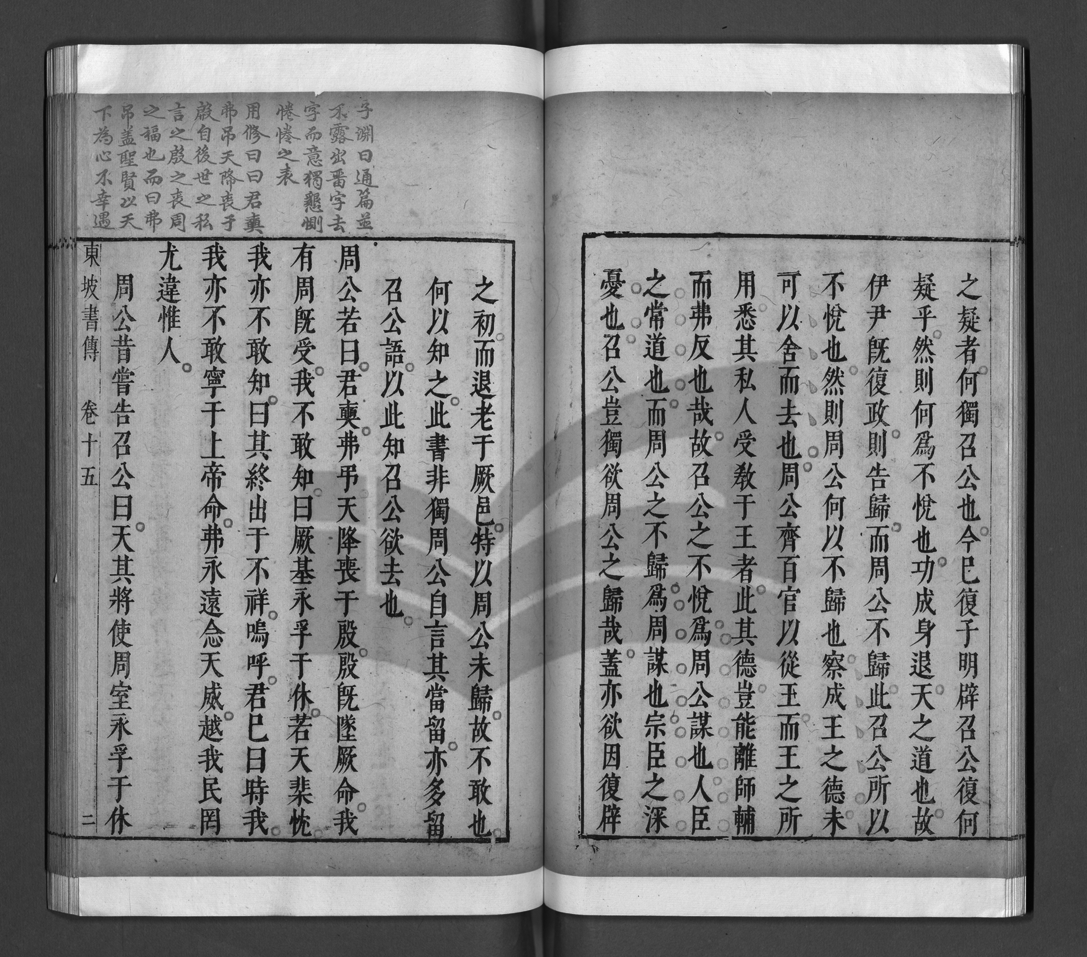 之疑者何獨召公也今巳復子明辟召公復何
疑乎然則何爲不悅也功成身退天之道也故
伊尹旣復政則告歸而周公不歸此召公所以
不悅也然則周公何以不歸也察成王之德未
可以舍而去也周公齊百官以從王而王之所
用悉其私人受敎于王者此其德豈能離師輔
而弗反也哉故召公之不悅爲周公謀也人臣
之常道也而周公之不歸爲周謀也宗臣之深
憂也召公豈獨欲周公之歸哉蓋亦欲因復辟
之初而退老于厥邑特以周公未歸故不敢也
何以知之此書非獨周公自言其當留亦多留
召公語以此知召公欲去也
周公若曰君奭弗弔天降喪于殷殷旣墜厥命我
有周旣受我不敢知曰厥基永孚于休若天棐忱
我亦不敢知曰其終出于不祥嗚呼君巳曰時我
我亦不敢寧于上帝命弗永遠念天威越我民罔
尤違惟人
周公昔嘗告召公曰天其將使周室永孚于休
東坡書傳
卷十五
二
子淵曰通篇並
不露出畱字去
字而意獨懇惻
惓惓之表
用修曰曰君奭
弗吊天降喪于
殷自後世之私
言之殷之喪周
之福也而曰弗
吊盖聖賢以天
下為心不幸遇